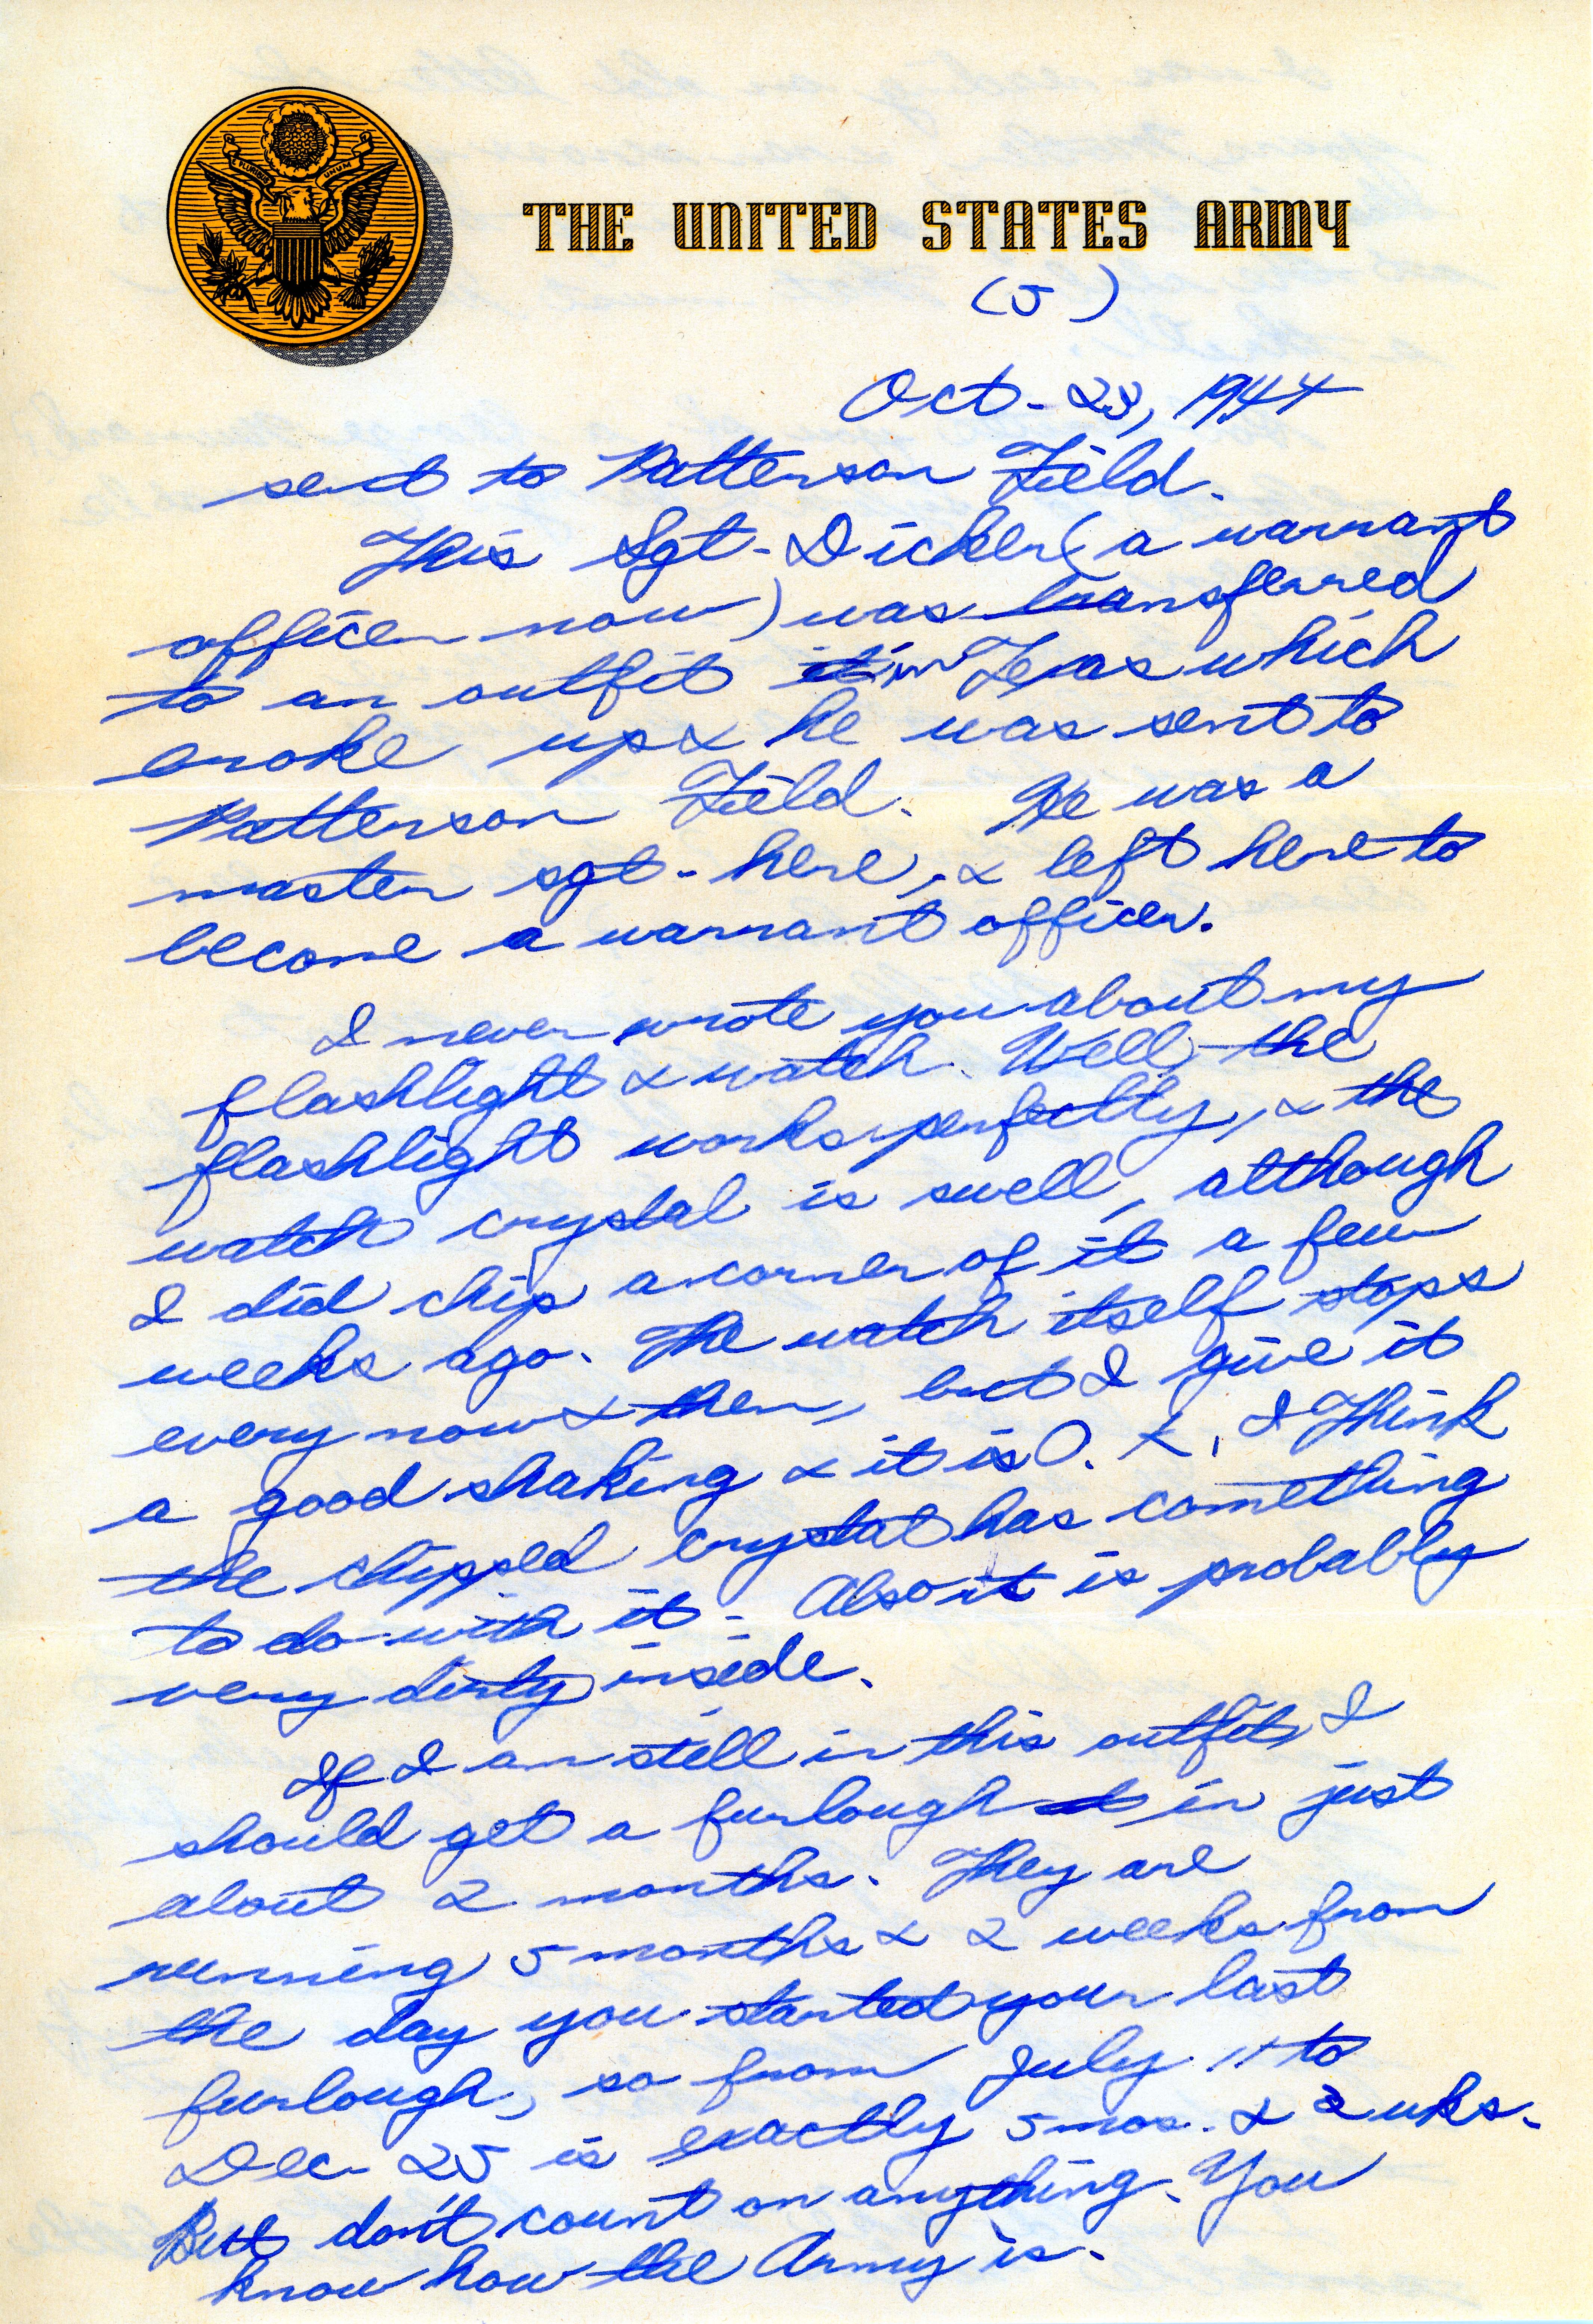 E PLURIBUS UNUM
THE UNITED STATES ARMY
(5)
Oct. 23, 1944
sent to Patterson Field.
This Sgt. Dicker (a warrant
officer now) was transferred
to an outfit in Texas which
broke up & he was sent to
Patterson Field. He was a
master sgt. here, & left here to
become a warrant officer.
I never wrote you about my
flashlight & watch. Well, the
flashlight works perfectly, & the
watch crystal is swell, although
I did chip a corner of it a few
weeks ago. The watch itself stops
every now & then, but I give it
a good shaking & it is O.K. I think
the chipped crystal has something
to do with it. Also it is probably
very dirty inside.
If I am still in this outfit, I
should get a furlough in just
about 2 months. They are
running 5 months & 2 weeks from
the day you started your last
furlough, so from July 11 to
Dec. 25 is exactly 5 mos. & 2 wks.
But don't count on anything. You
know how the Army is.